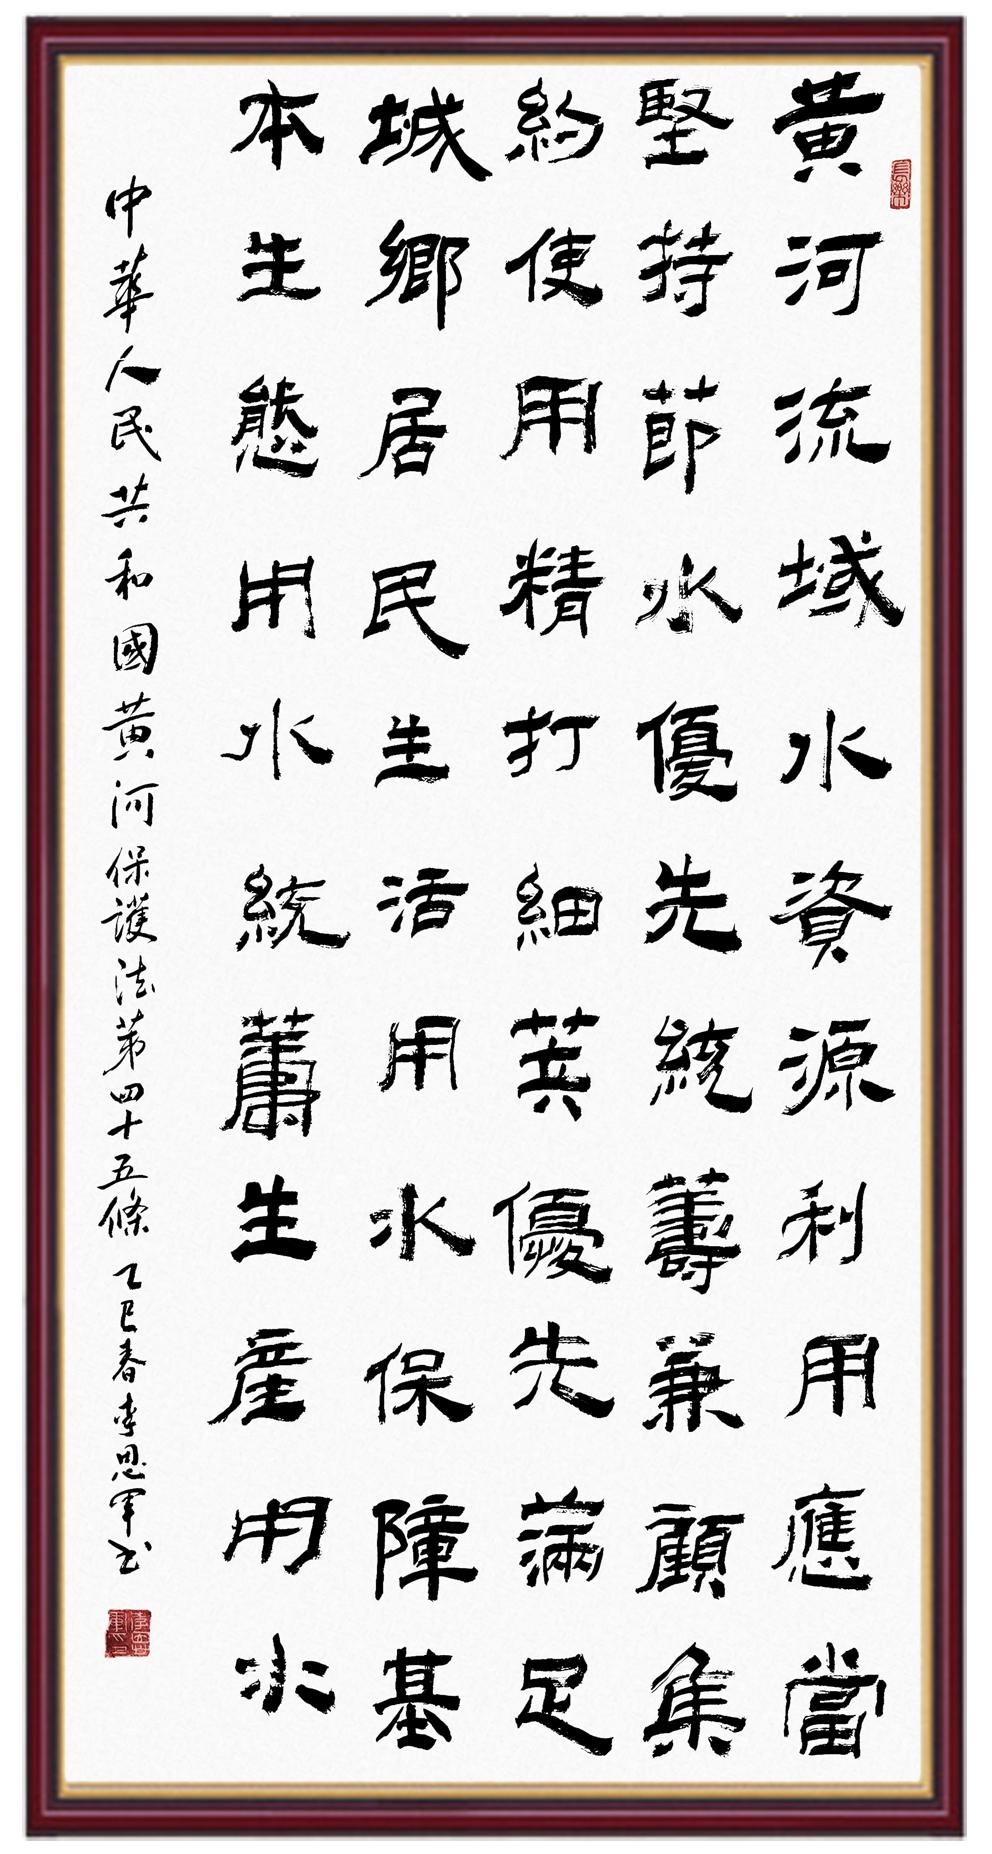 長樂
黄河流域水資源利用應當
堅持節水優先統籌兼顧集
約使用精打細算優先滿足
城鄉居民生活用水保障基
本生態用水統籌生產用水
中華人民共和國黄河保護法第四十五條 乙巳春李恩军书